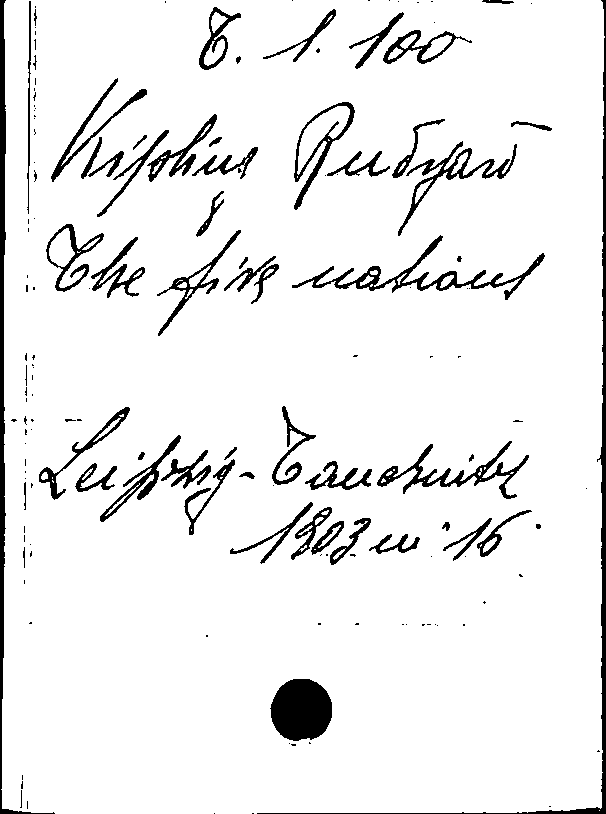 T. 1. 100
Kipling Rudyard
The five nations
Leipzig - Tauchnitz
1903 in 16.